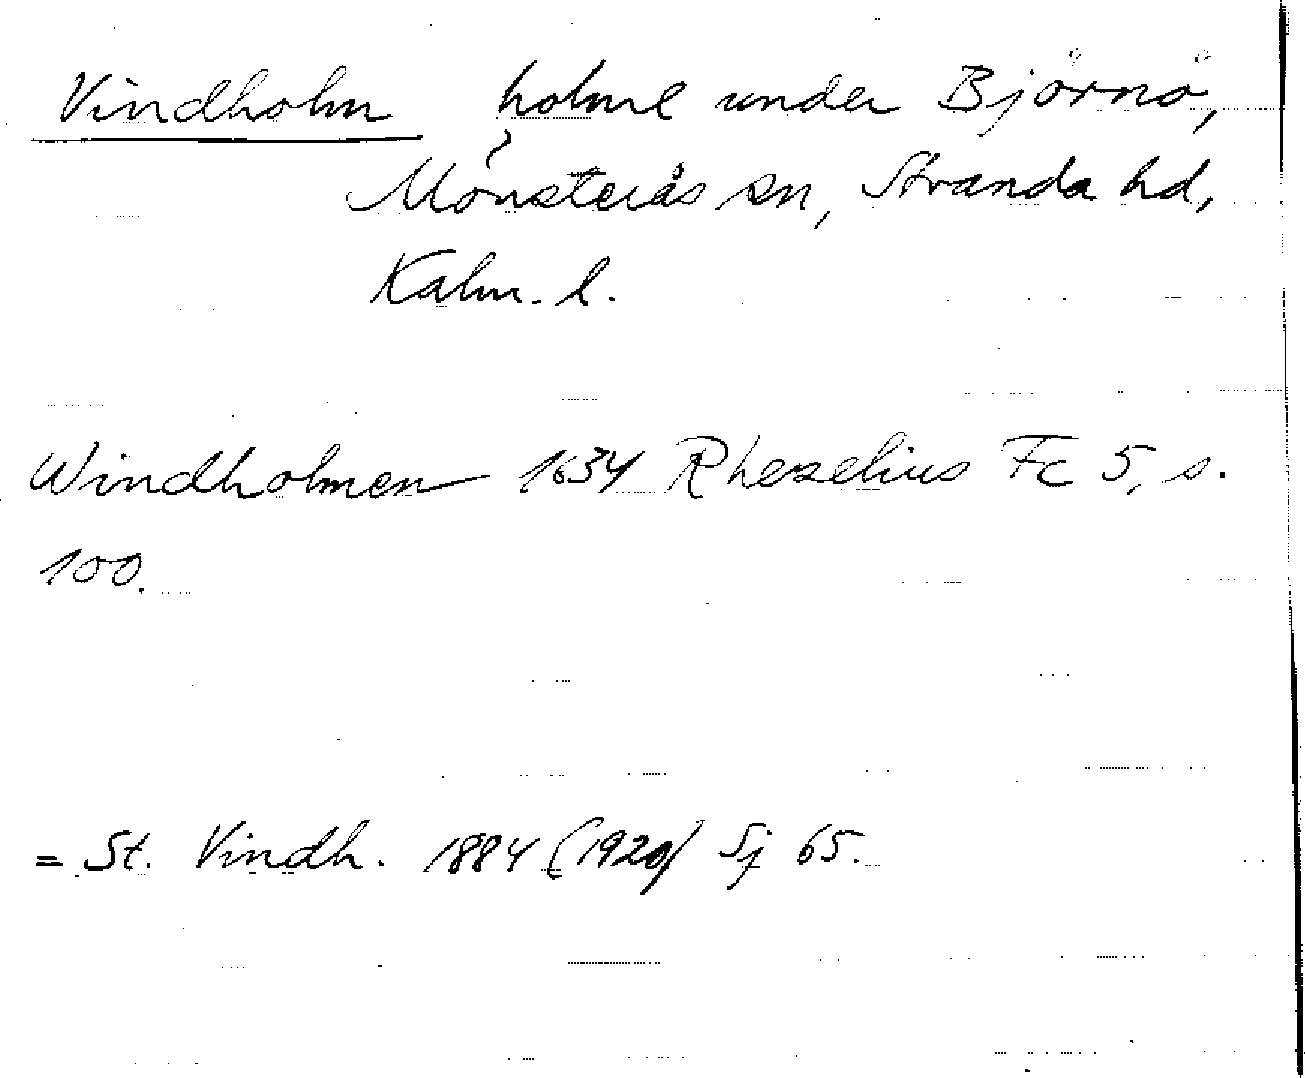 Vindholm holme under Björnö,
Mönsterås sn, Stranda hd,
Kalm. l.
Windholmen 1634 Rhezelius Fc 5, s.
100.
= St. Vindh. 1884 (1920) Sj 65.